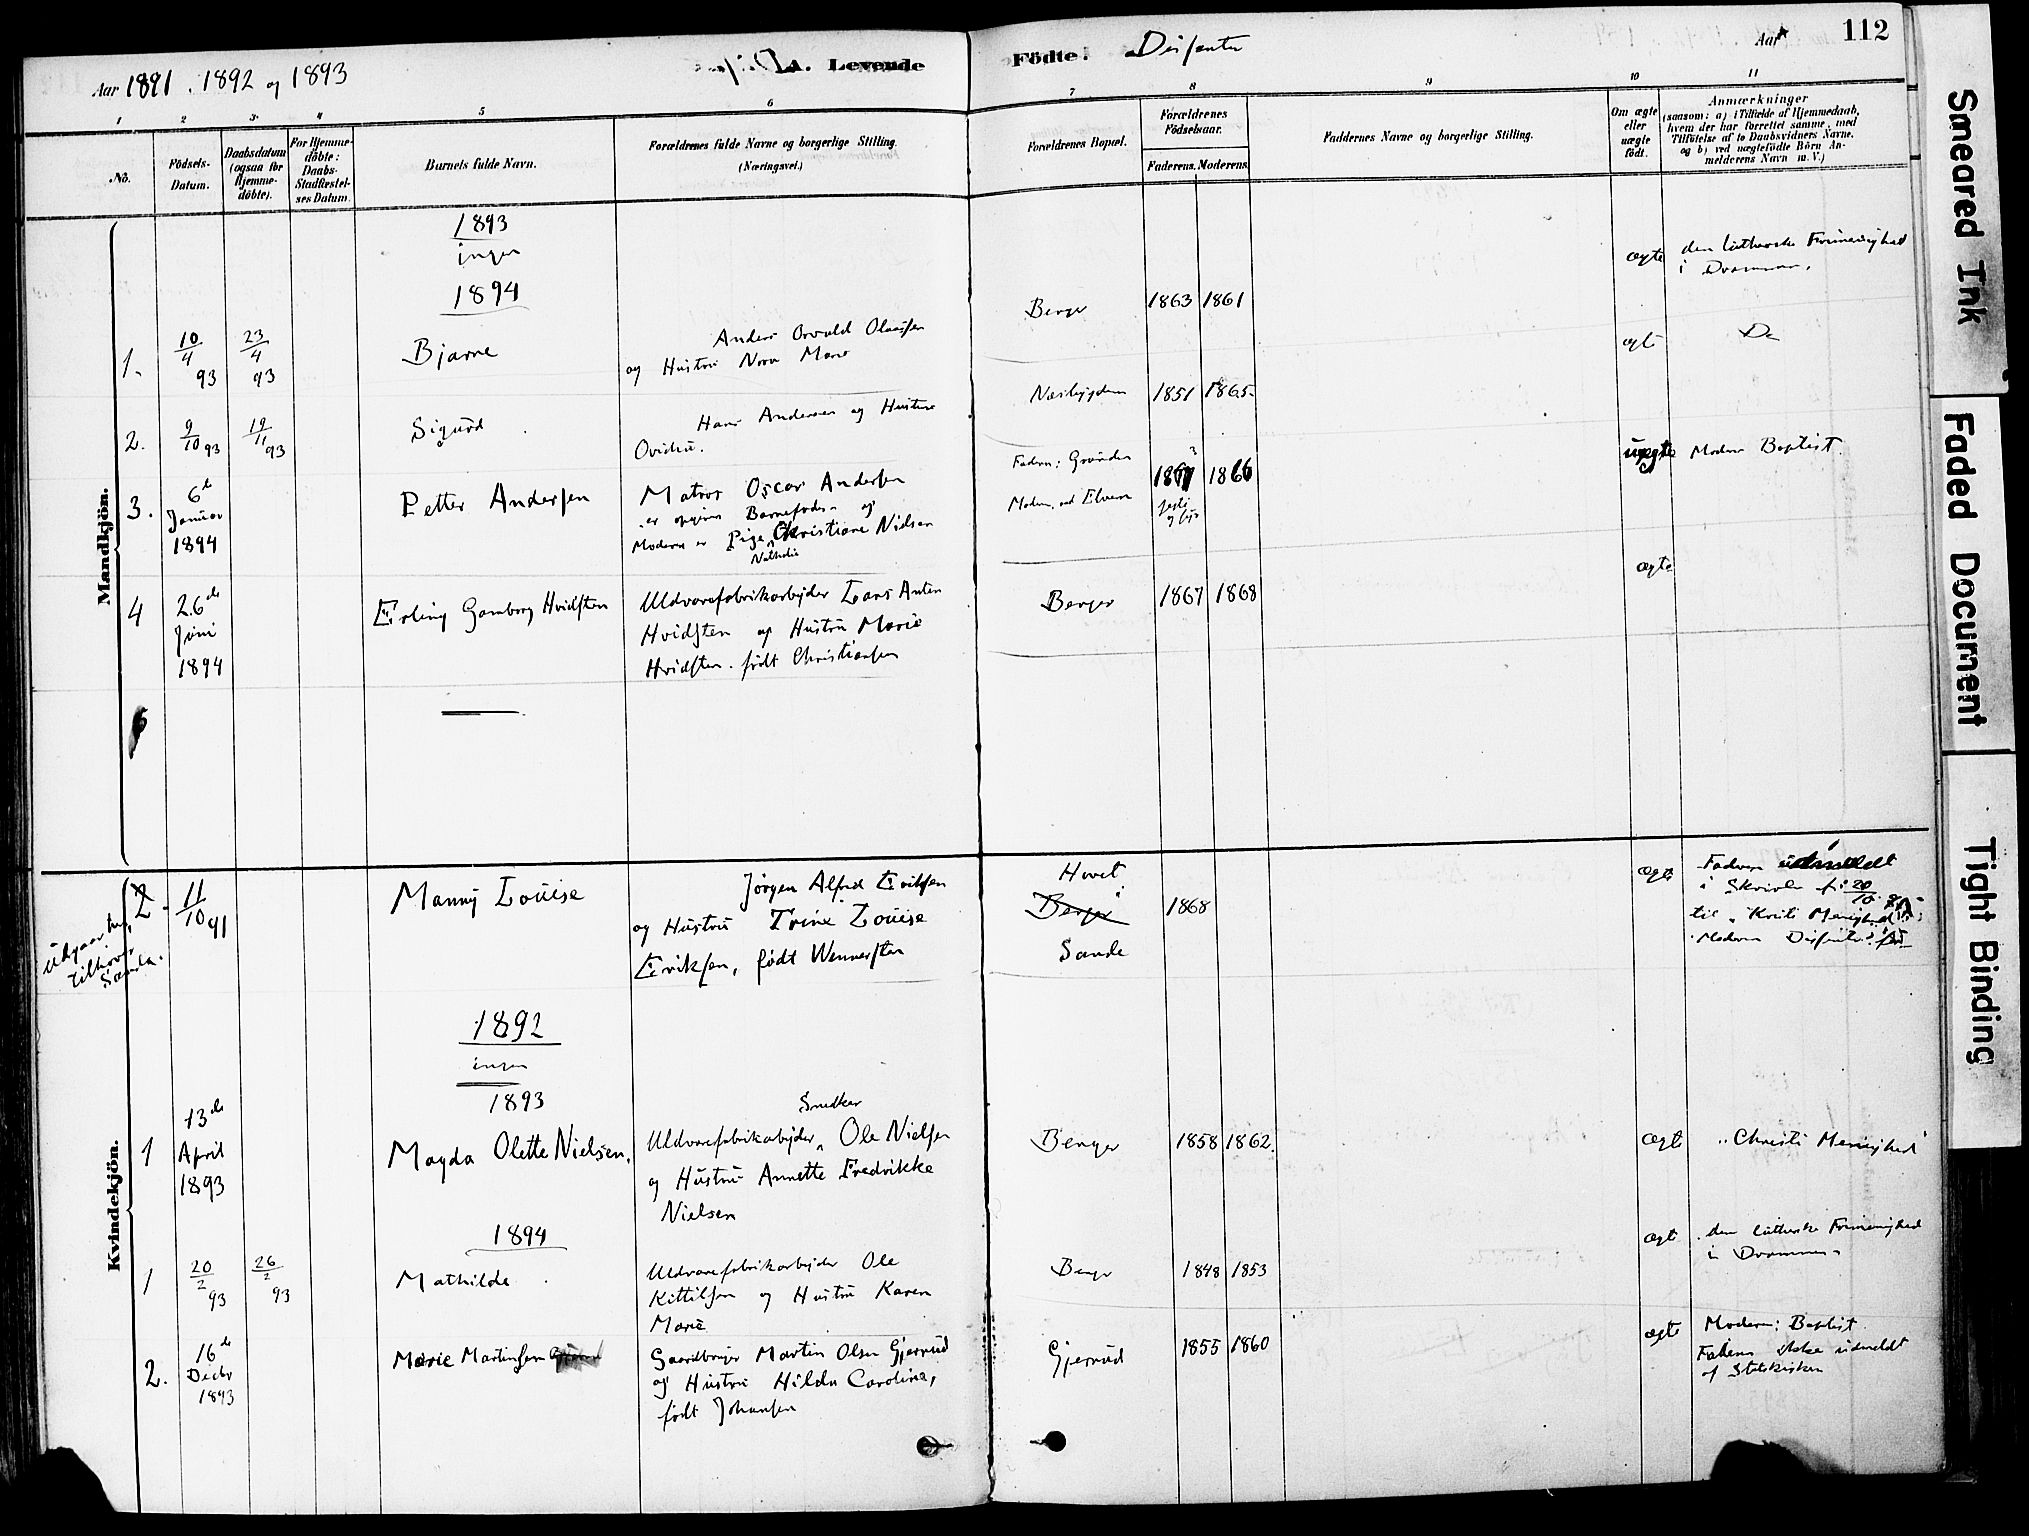 112
Aar 1891. 1892 og 1893
A. Levende
Födte.
Disfenter
Aar
1
2
3
4
5
6
7
8
9
10
11
No.
Födsels-
Datum.
Daabsdatum
(ogsaa for
Hjemme-
döbte).
For Hjemme-
döbte:
Daabs-
Stadfæstel-
ses Datum.
Barnets fulde Navn.
Forældrenes fulde Navne og borgerlige Stilling.
(Næringsvei.)
Forældrenes Bopæl.
Forældrenes
Födselsaar.
Faderens. Moderens.
Faddernes Navne og borgerlige Stilling.
Om ægte
eller
uægte
födt.
Anmærkninger
(saasom: a) i Tilfælde af Hjemmedaab,
hvem der har forrettet samme, med
Tilföielse af to Daabsvidners Navne,
og b) ved uægtefödte Börn An-
melderens Navn m. V.)
Mandkjön.
1893
ingen
1894
1.
10/4 93
23/4 93
Bjarne
Anders Orvald Olaussen
og Hustru Nora Marie
Berger
1863 1861
ægte
den lutherske Frimenighed
i Drammen.
2.
9/10 93
19/11 93
Sigurd
Hans Andersen og Hustru
Ovidia.
Næsbygden
1851 1865
ægte
Do
3.
6te
Januar
1894
Petter Andersen
Matros Oscar Andersen
er opgiven Barnefader og
Moderen er Pige Christiane Nielsen
Nathalie
Fadern: Grønden
Modern. ved Elven
1866
uægte
Modern Baptist.
4
26de
Juni
1894
Erling Gamborg Hvidsten
Uldvarefabrikarbejder Lars Anton
Hvidsten og Hustru Marie
Hvidsten. født Christiansen
Berger
1867 1868
ægte
Kvindekjön.
udgaar her,
tilhører
Sande.
2
11/10 91
Manny Louise
Jørgen Alfred Eriksen
og Hustru Trine Louise
Eriksen, født Wennersten
Hovet
Berger
Sande
1868
ægte
Fadern udmeldt
i Skrivelse fr: 20/10
til "Kristi Menighed"
Modern Disfenter
1892
ingen
1893
1
13de
April
1893
Magda Olette Nielsen.
Snedker
Uldvarefabrikarbejder Ole Nielsen
og Hustru Annette Fredrikke
Nielsen
Berger
1858 1862.
ægte
"Christi Menighed"
1894
1
20/2 93
26/2 93
Mathilde
Uldvarefabrikarbejder Ole
Kittilsen og Hustru Karen
Marie
Berger
1848 1853
ægte
den lutherske Frimenighed
i Drammen
2.
16de
Decbr
1893
Marie Martinsen
Gaardbruger Martin Olsen Gjerrud
og Hustru Hilda Carolina,
født Johansen
Gjerrud
1855 1860
ægte
Modern: Baptist
Faderen ikke udmeldt
af Statskirken
Smeared Ink
Faded Document
Tight Binding